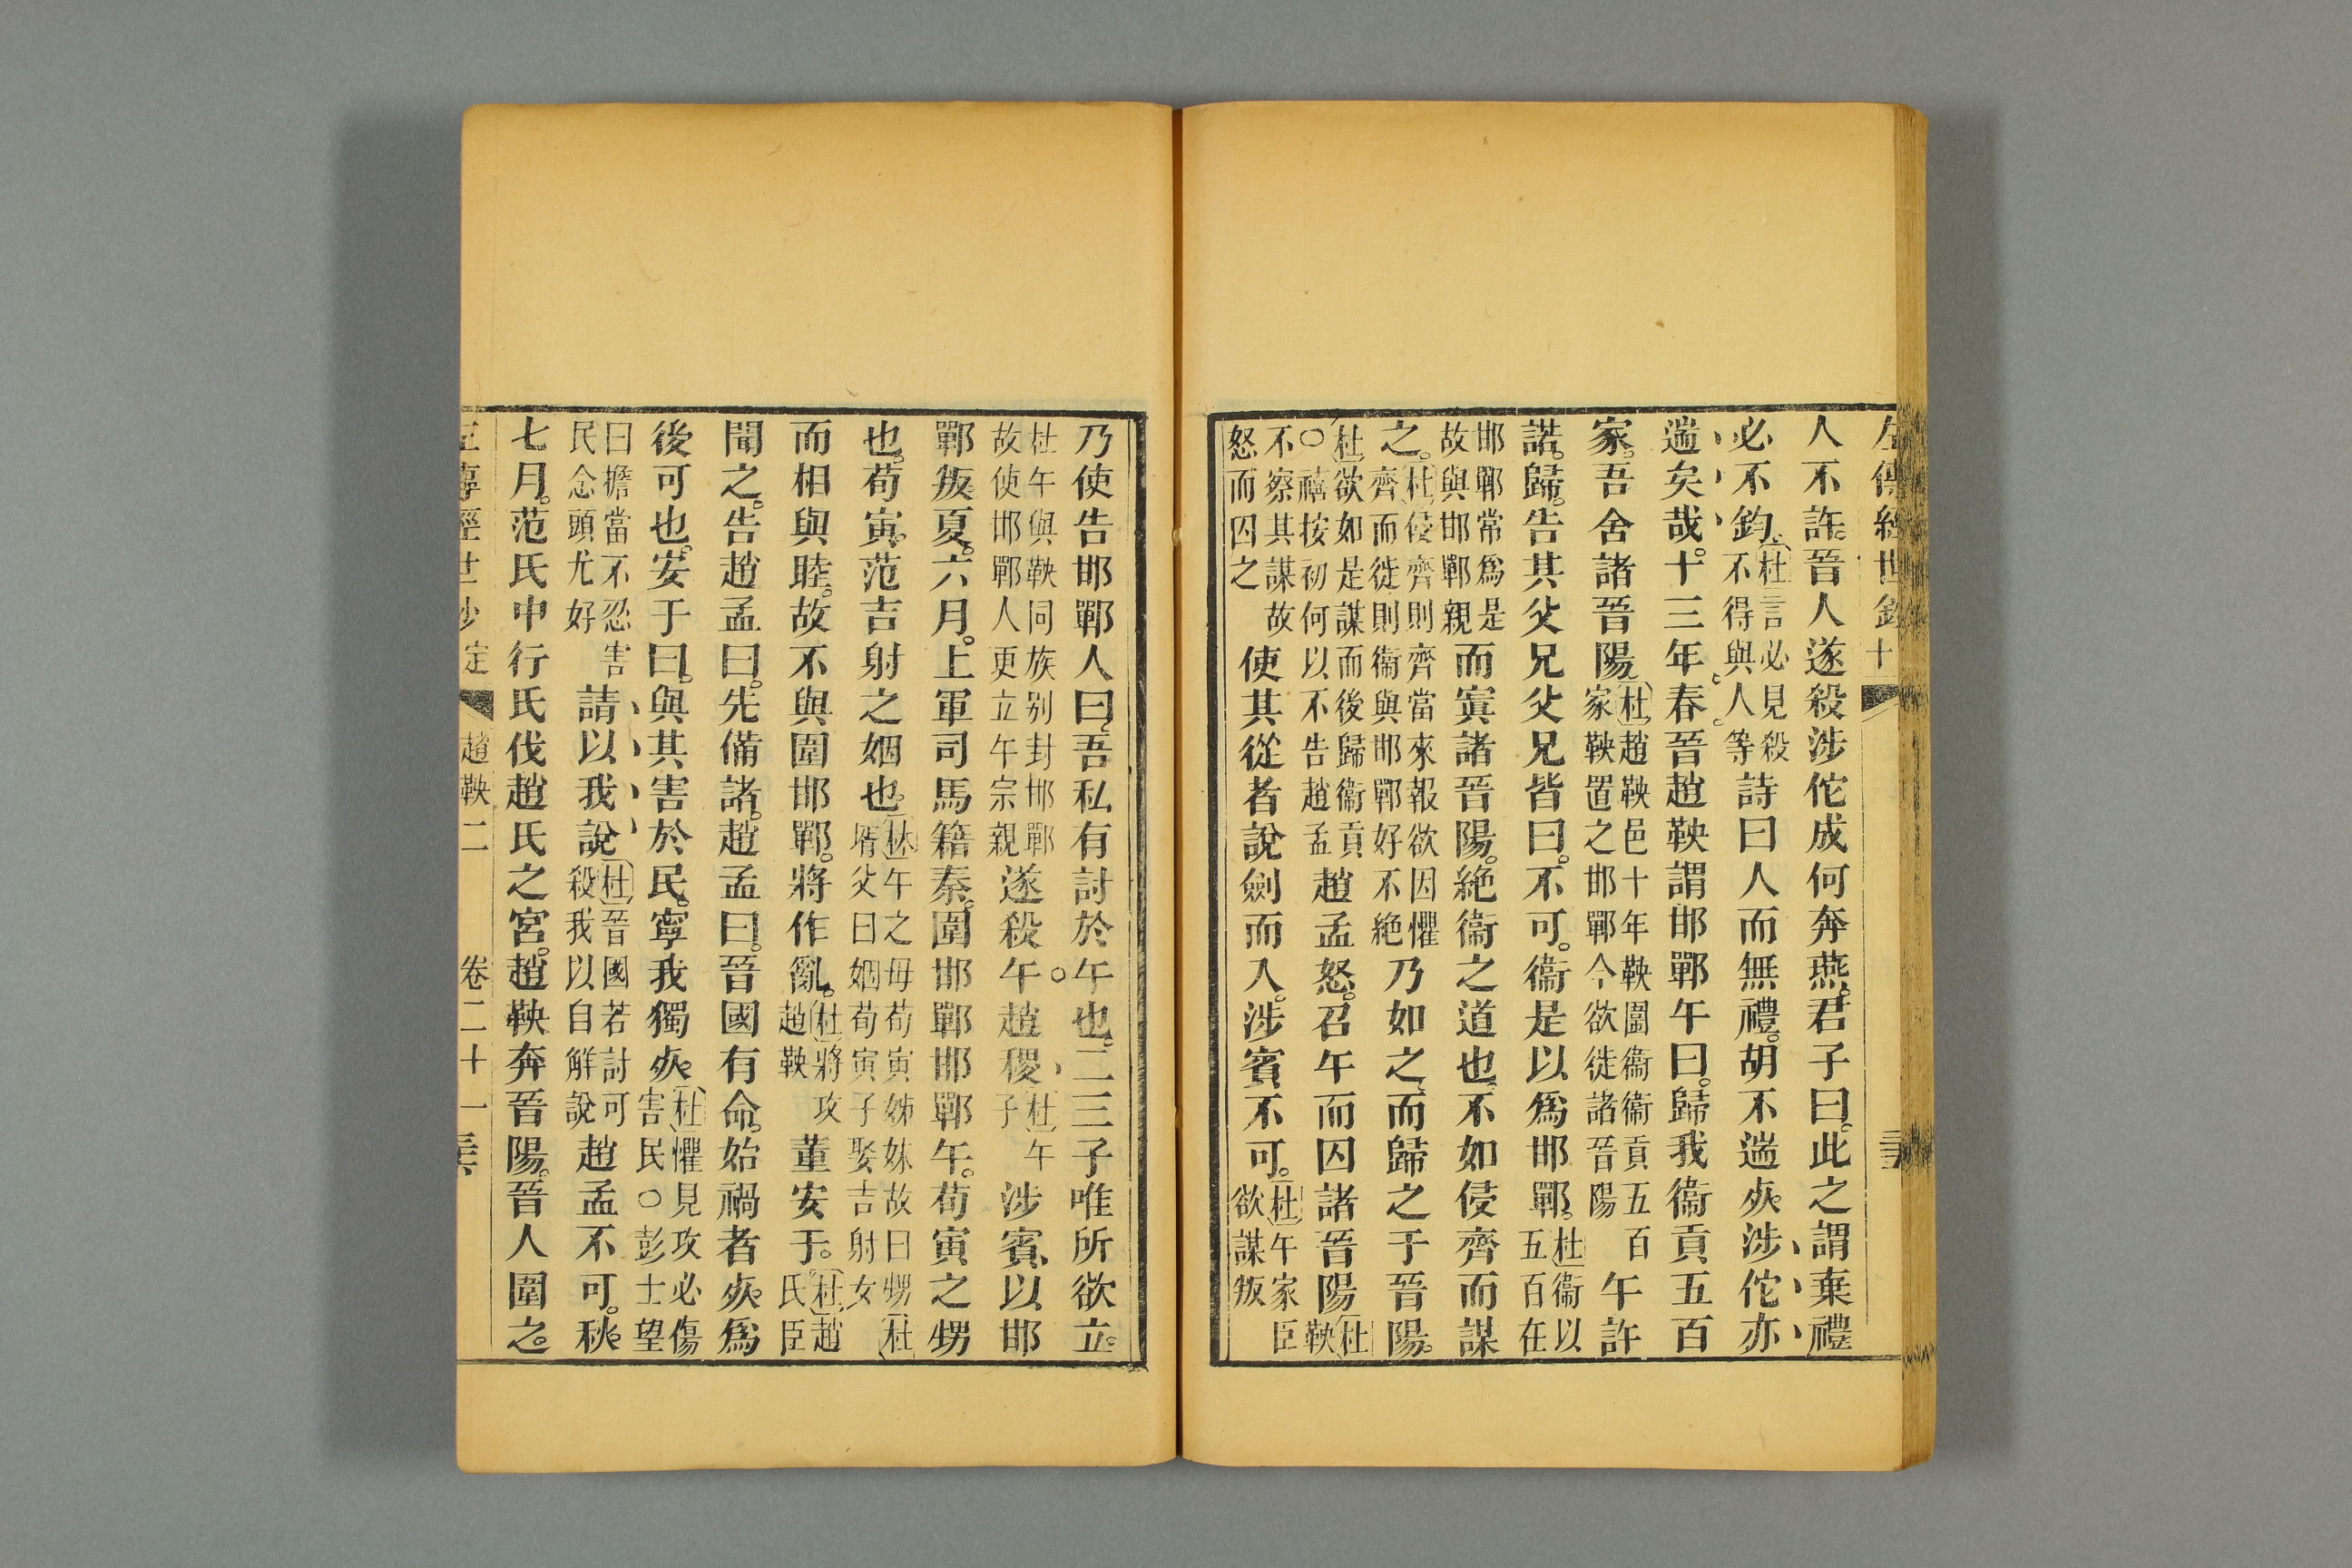 左傳經世鈔 十
人不許。晉人遂殺涉佗成何奔燕。君子曰。此之謂棄禮
必不鈞。杜言必見殺不得與人等詩曰人而無禮。胡不遄死。涉佗亦
遄矣哉。十三年春。晉趙鞅謂邯鄲午曰。歸我衞貢五百
家。吾舍諸晉陽。杜趙鞅邑十年鞅圍衞衞貢五百家鞅置之邯鄲今欲徙諸晉陽午許
諾。歸。告其父兄父兄皆曰。不可。衞是以爲邯鄲。杜衞以五百在
邯鄲常爲是故與邯鄲親而寘諸晉陽。絕衞之道也。不如侵齊而謀
之。杜侵齊則齊當來報欲因懼齊而徙則衞與邯鄲好不絕乃如之。而歸之于晉陽。
杜欲如是謀而後歸衞貢○禧按初何以不告趙孟趙孟怒。召午而囚諸晉陽。杜鞅
不察其謀故怒而囚之使其從者說劍而入。涉賓不可。杜午家臣欲謀叛
乃使告邯鄲人曰。吾私有討於午也。二三子唯所欲立。
杜午與鞅同族别封邯鄲故使邯鄲人更立午宗親遂殺午。趙稷杜午子涉賓以邯
鄲叛。夏。六月。上軍司馬籍秦。圍邯鄲邯鄲午。荀寅之甥
也。荀寅。范吉射之姻也。林午之母荀寅姊妹故曰甥杜壻父曰姻荀寅子娶吉射女
而相與睦。故不與圍邯鄲。將作亂。杜將攻趙鞅董安于。杜趙氏臣
聞之。告趙孟曰。先備諸。趙孟曰。晉國有命。始禍者死。爲
後可也。安于曰。與其害於民。寧我獨死。杜懼見攻必傷害民○彭士望
曰擔當不忍害民念頭尤好請以我說杜晉國若討可殺我以自解說趙孟不可。秋。
七月。范氏中行氏伐趙氏之宮。趙鞅奔晉陽。晉人圍之。
左傳經世鈔定 趙鞅二 卷二十一